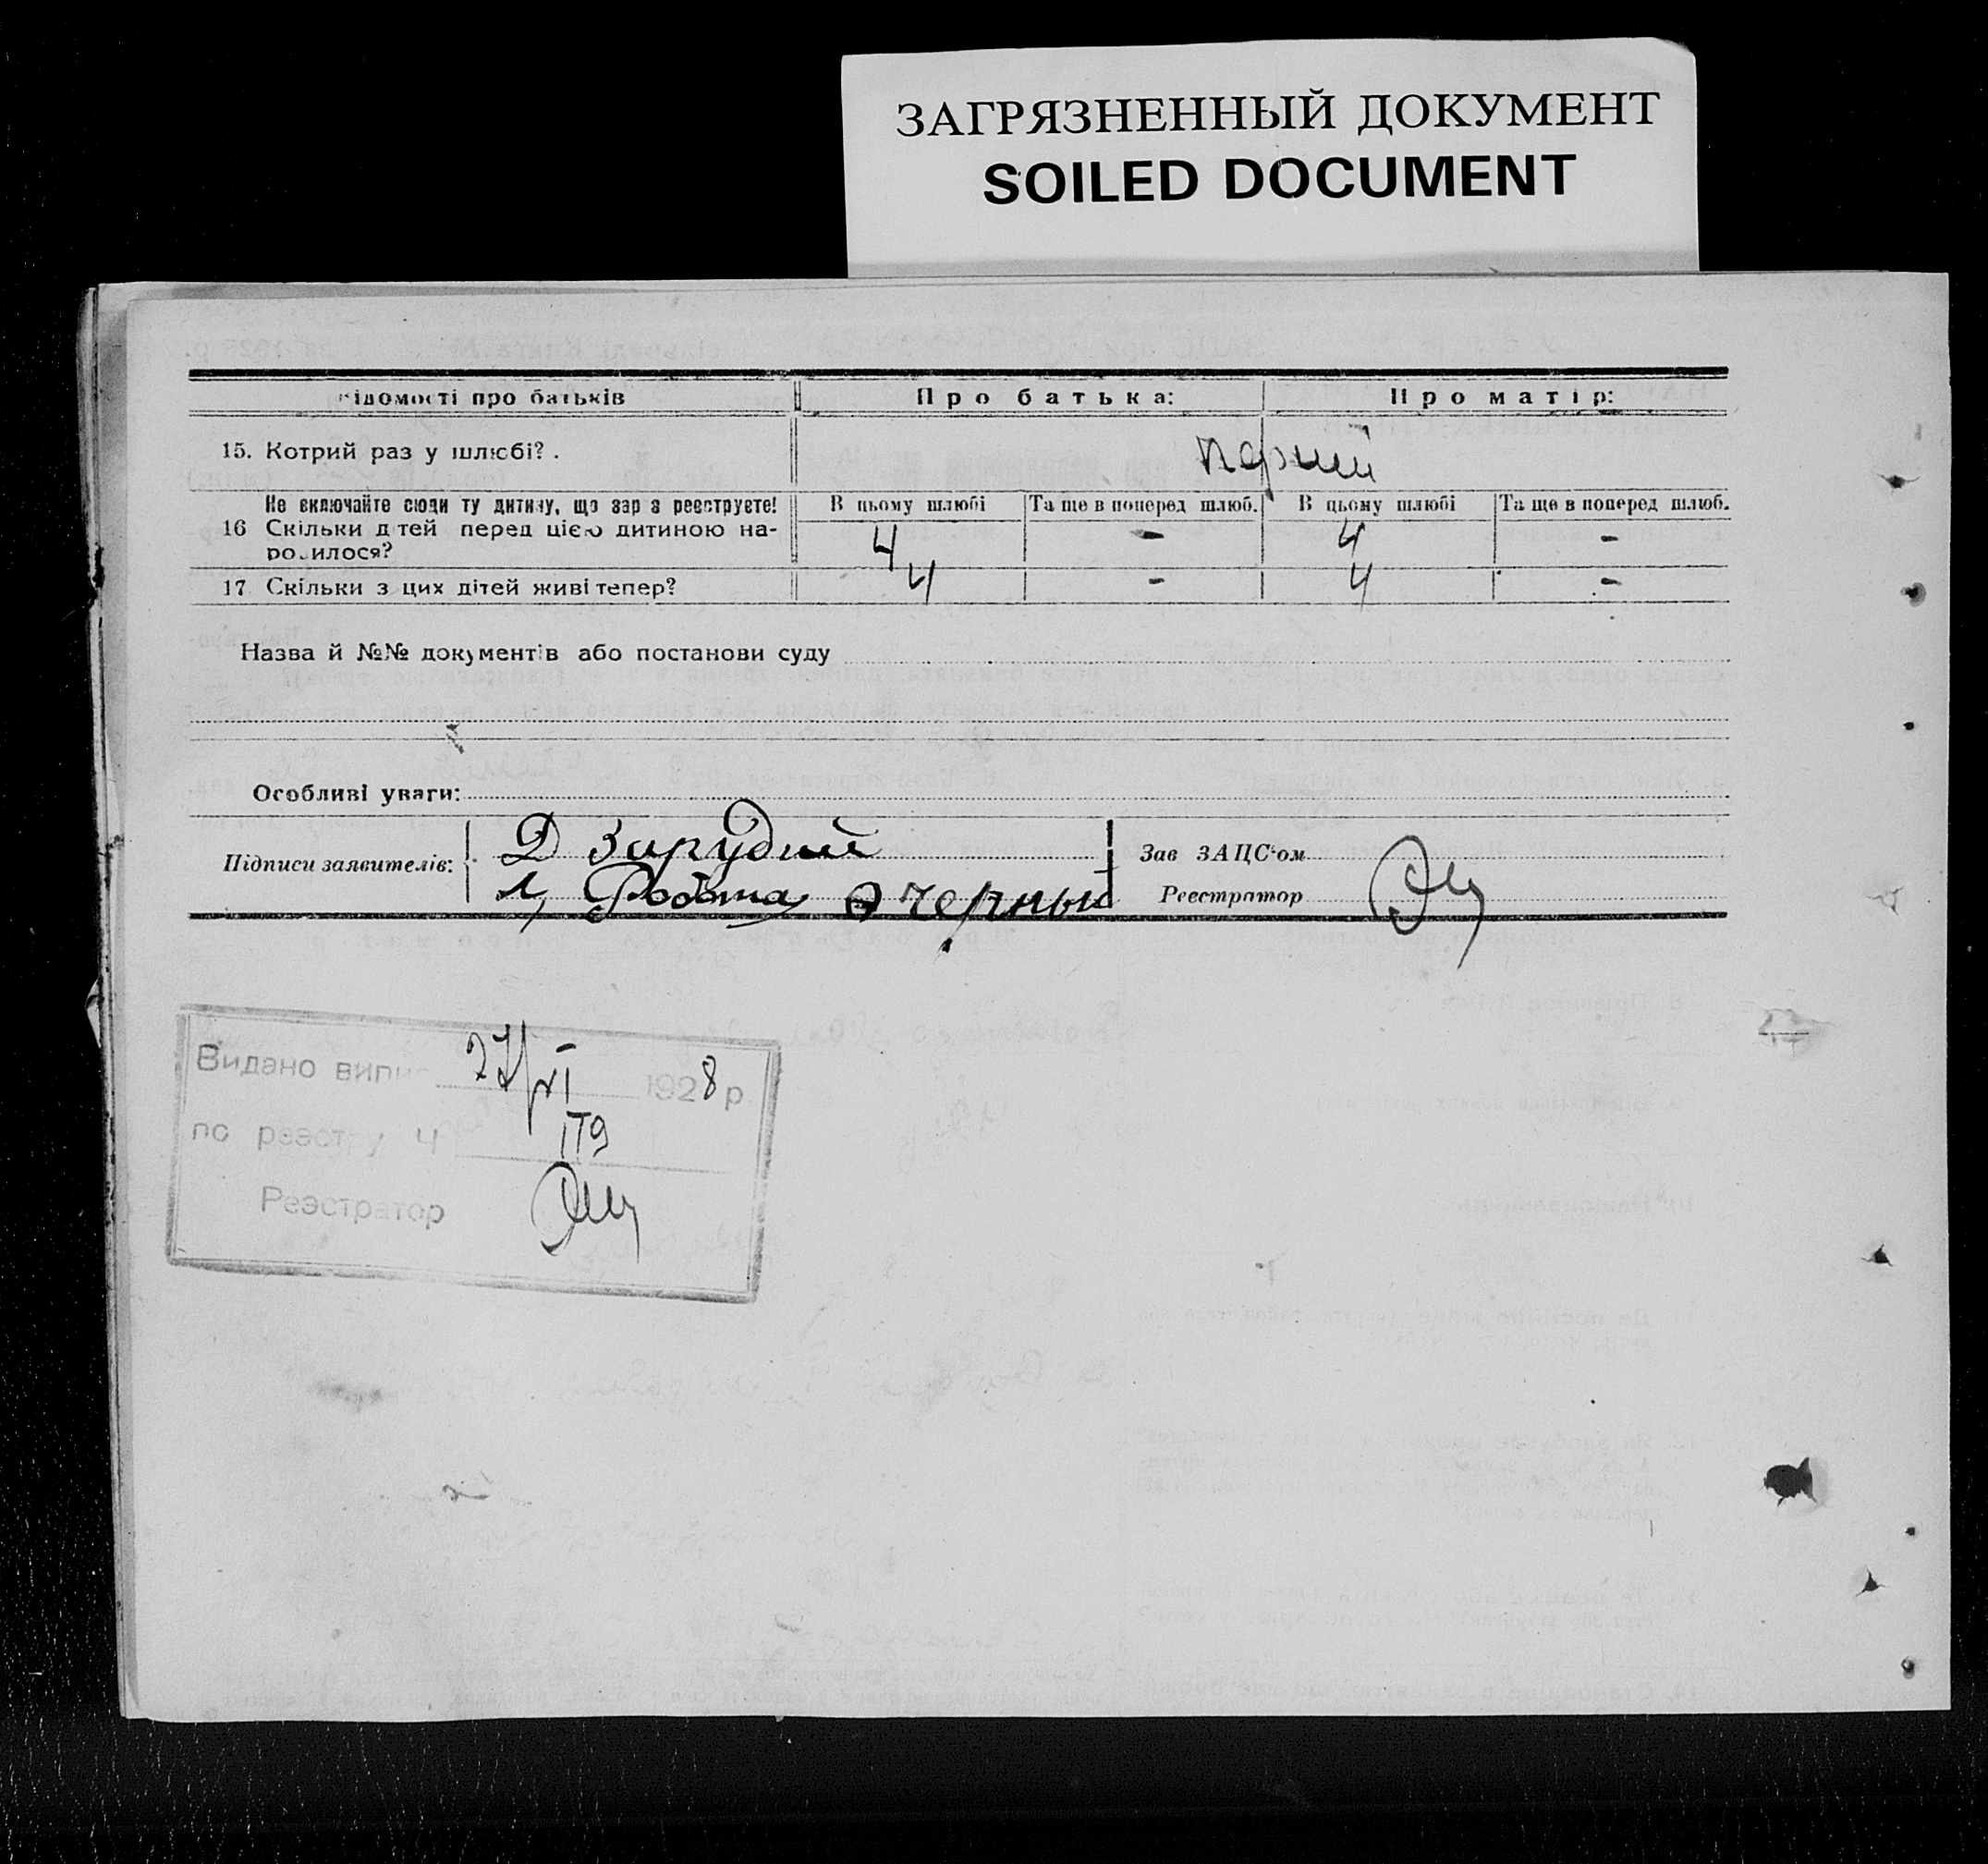 ЗАГРЯЗНЕННЫЙ ДОКУМЕНТ
SOILED DOCUMENT
ідомості про батьків
Про батька:
Про матір:
15. Котрий раз у шлюбі? .
Не включайте сюди ту дитину, що зар з реєструєте!
В цьому шлюбі
Та ще в поперед шлюб.
В цьому шлюбі
Та ще в поперед шлюб.
16 Скільки д тей перед цією дитиною на-
ро илося?
4 - 4 -
17 Скільки з цих дітей живі тепер?
4 - 4 -
Назва й №№ документів або постанови суду
Особливі уваги:
Підписи заявителів:
Д Зарудний
Зав ЗАЦС'ом
Реєстратор
Видано випис 27/VI 1928 р
по реэстру Ч 179
Реэстратор